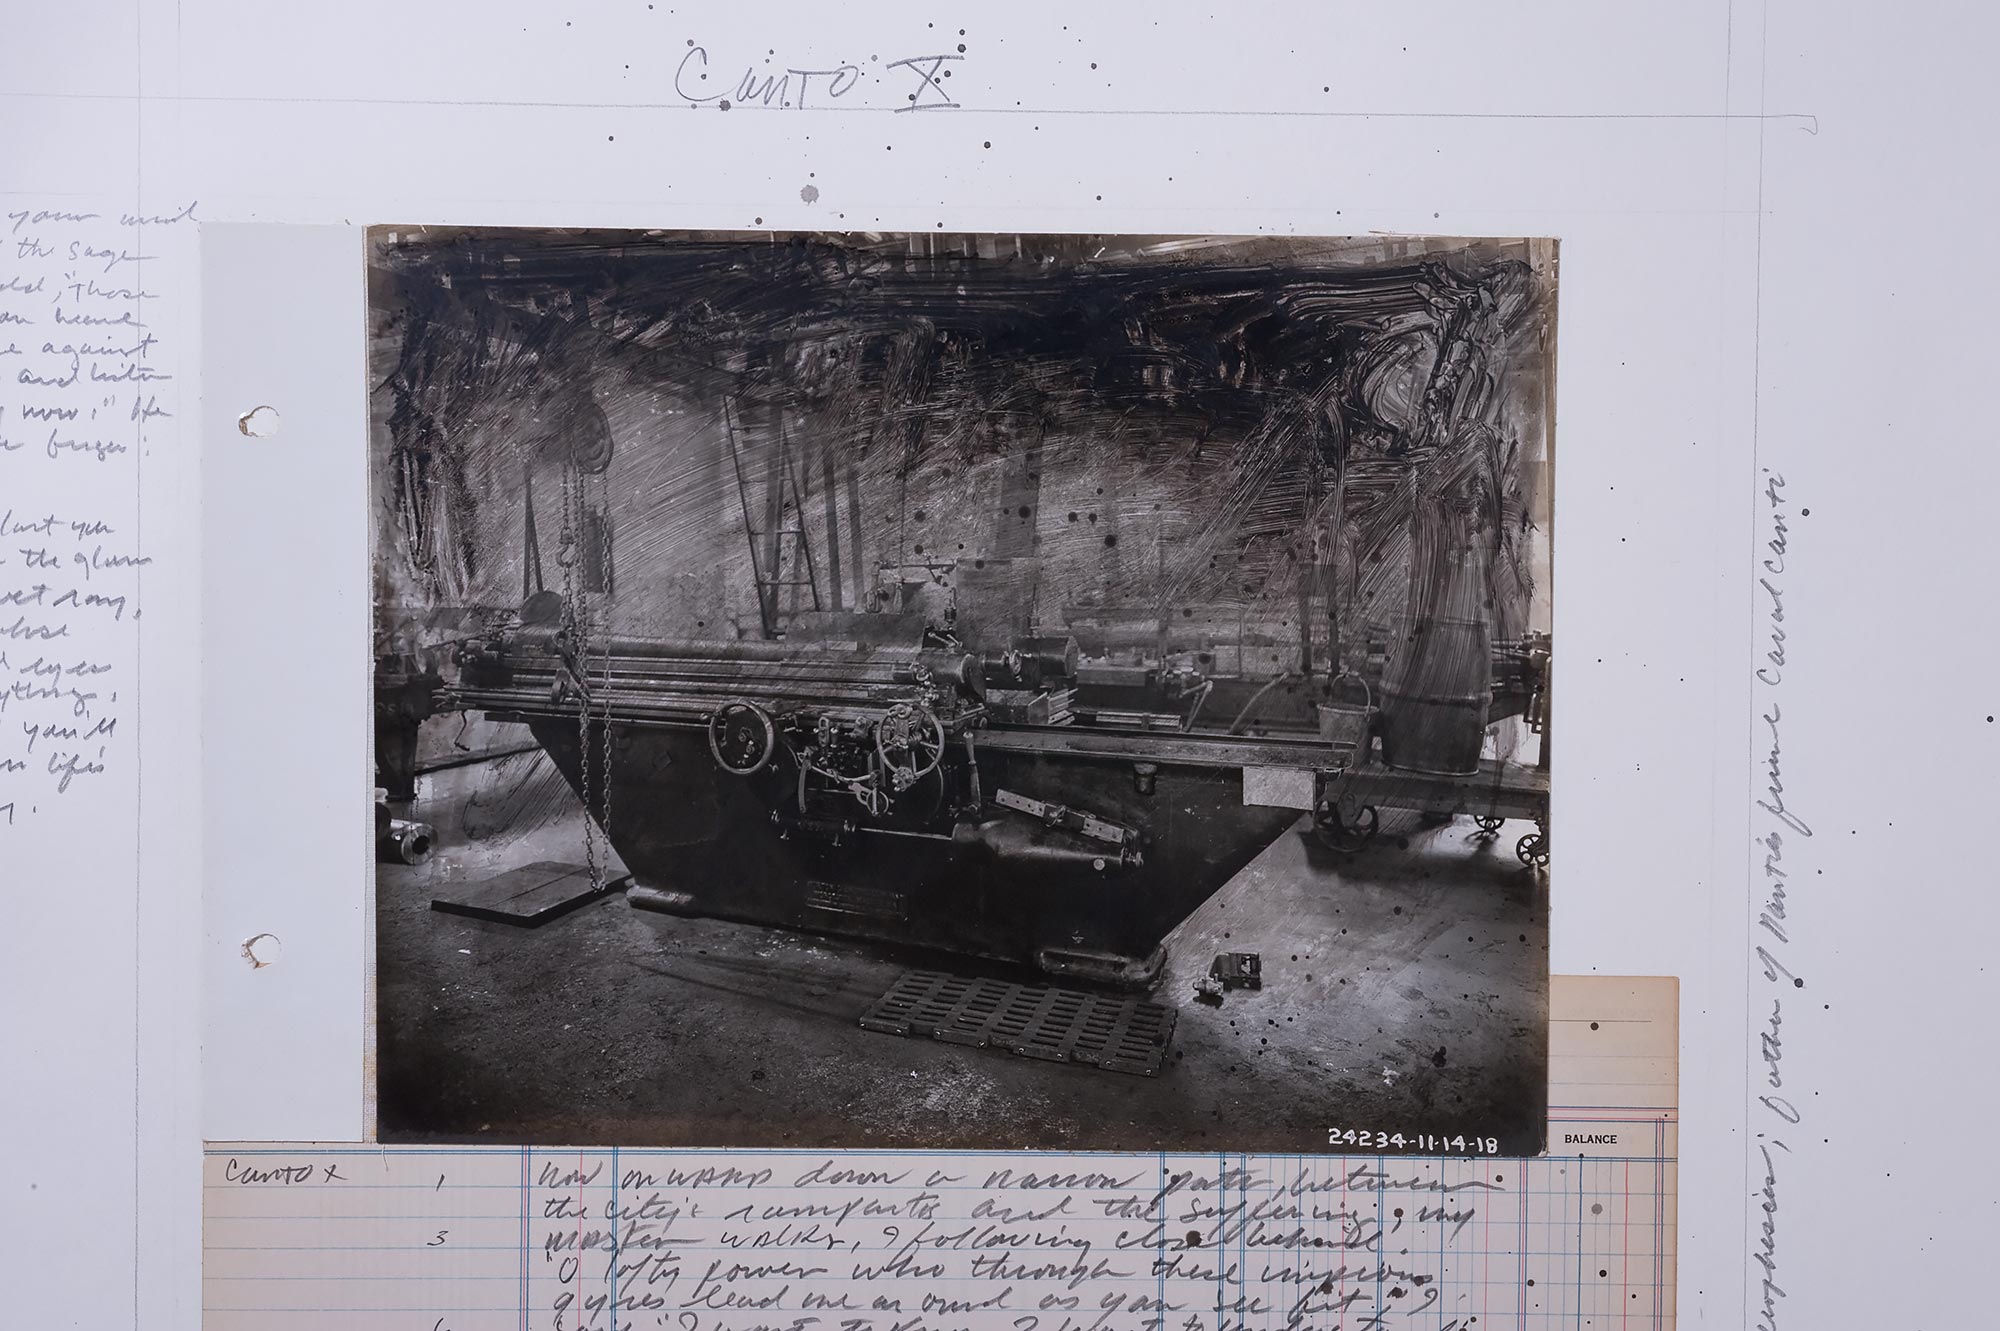 CANTO X
your mind
the sage
"those
against
and listen
now." He
finger:
last you
the glow
eyes
you'll
life's
24234-11-14-18
BALANCE
CANTO X 1 Now onwards down a narrow path, between
the city's ramparts and the suffering, my
3 master walks, I following close behind.
"O lofty power who through these impious
gyres lead me around as you see fit," I
6 want to know, I want to understand
father of Dante's friend Cavalcanti